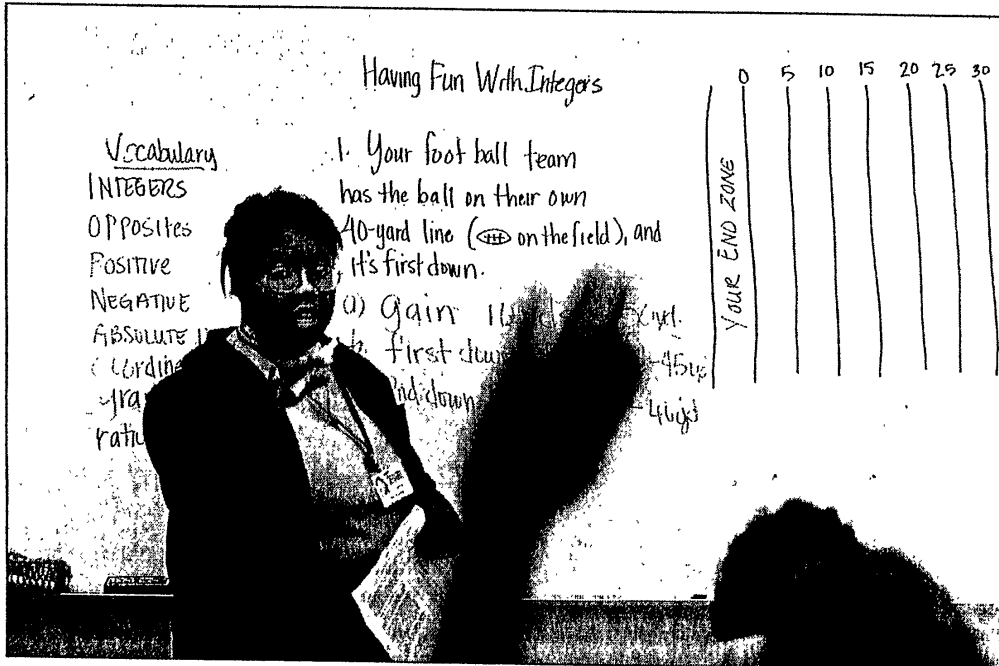 Having Fun With Integers
Vocabulary
INTEGERS
OPPOSITES
POSITIVE
NEGATIVE
ABSOLUTE
1. Your foot ball team
has the ball on their own
40-yard line ( on the field), and
it's first down.
a) Gain
first down
down
0 5 10 15 20 25 30
YOUR END ZONE